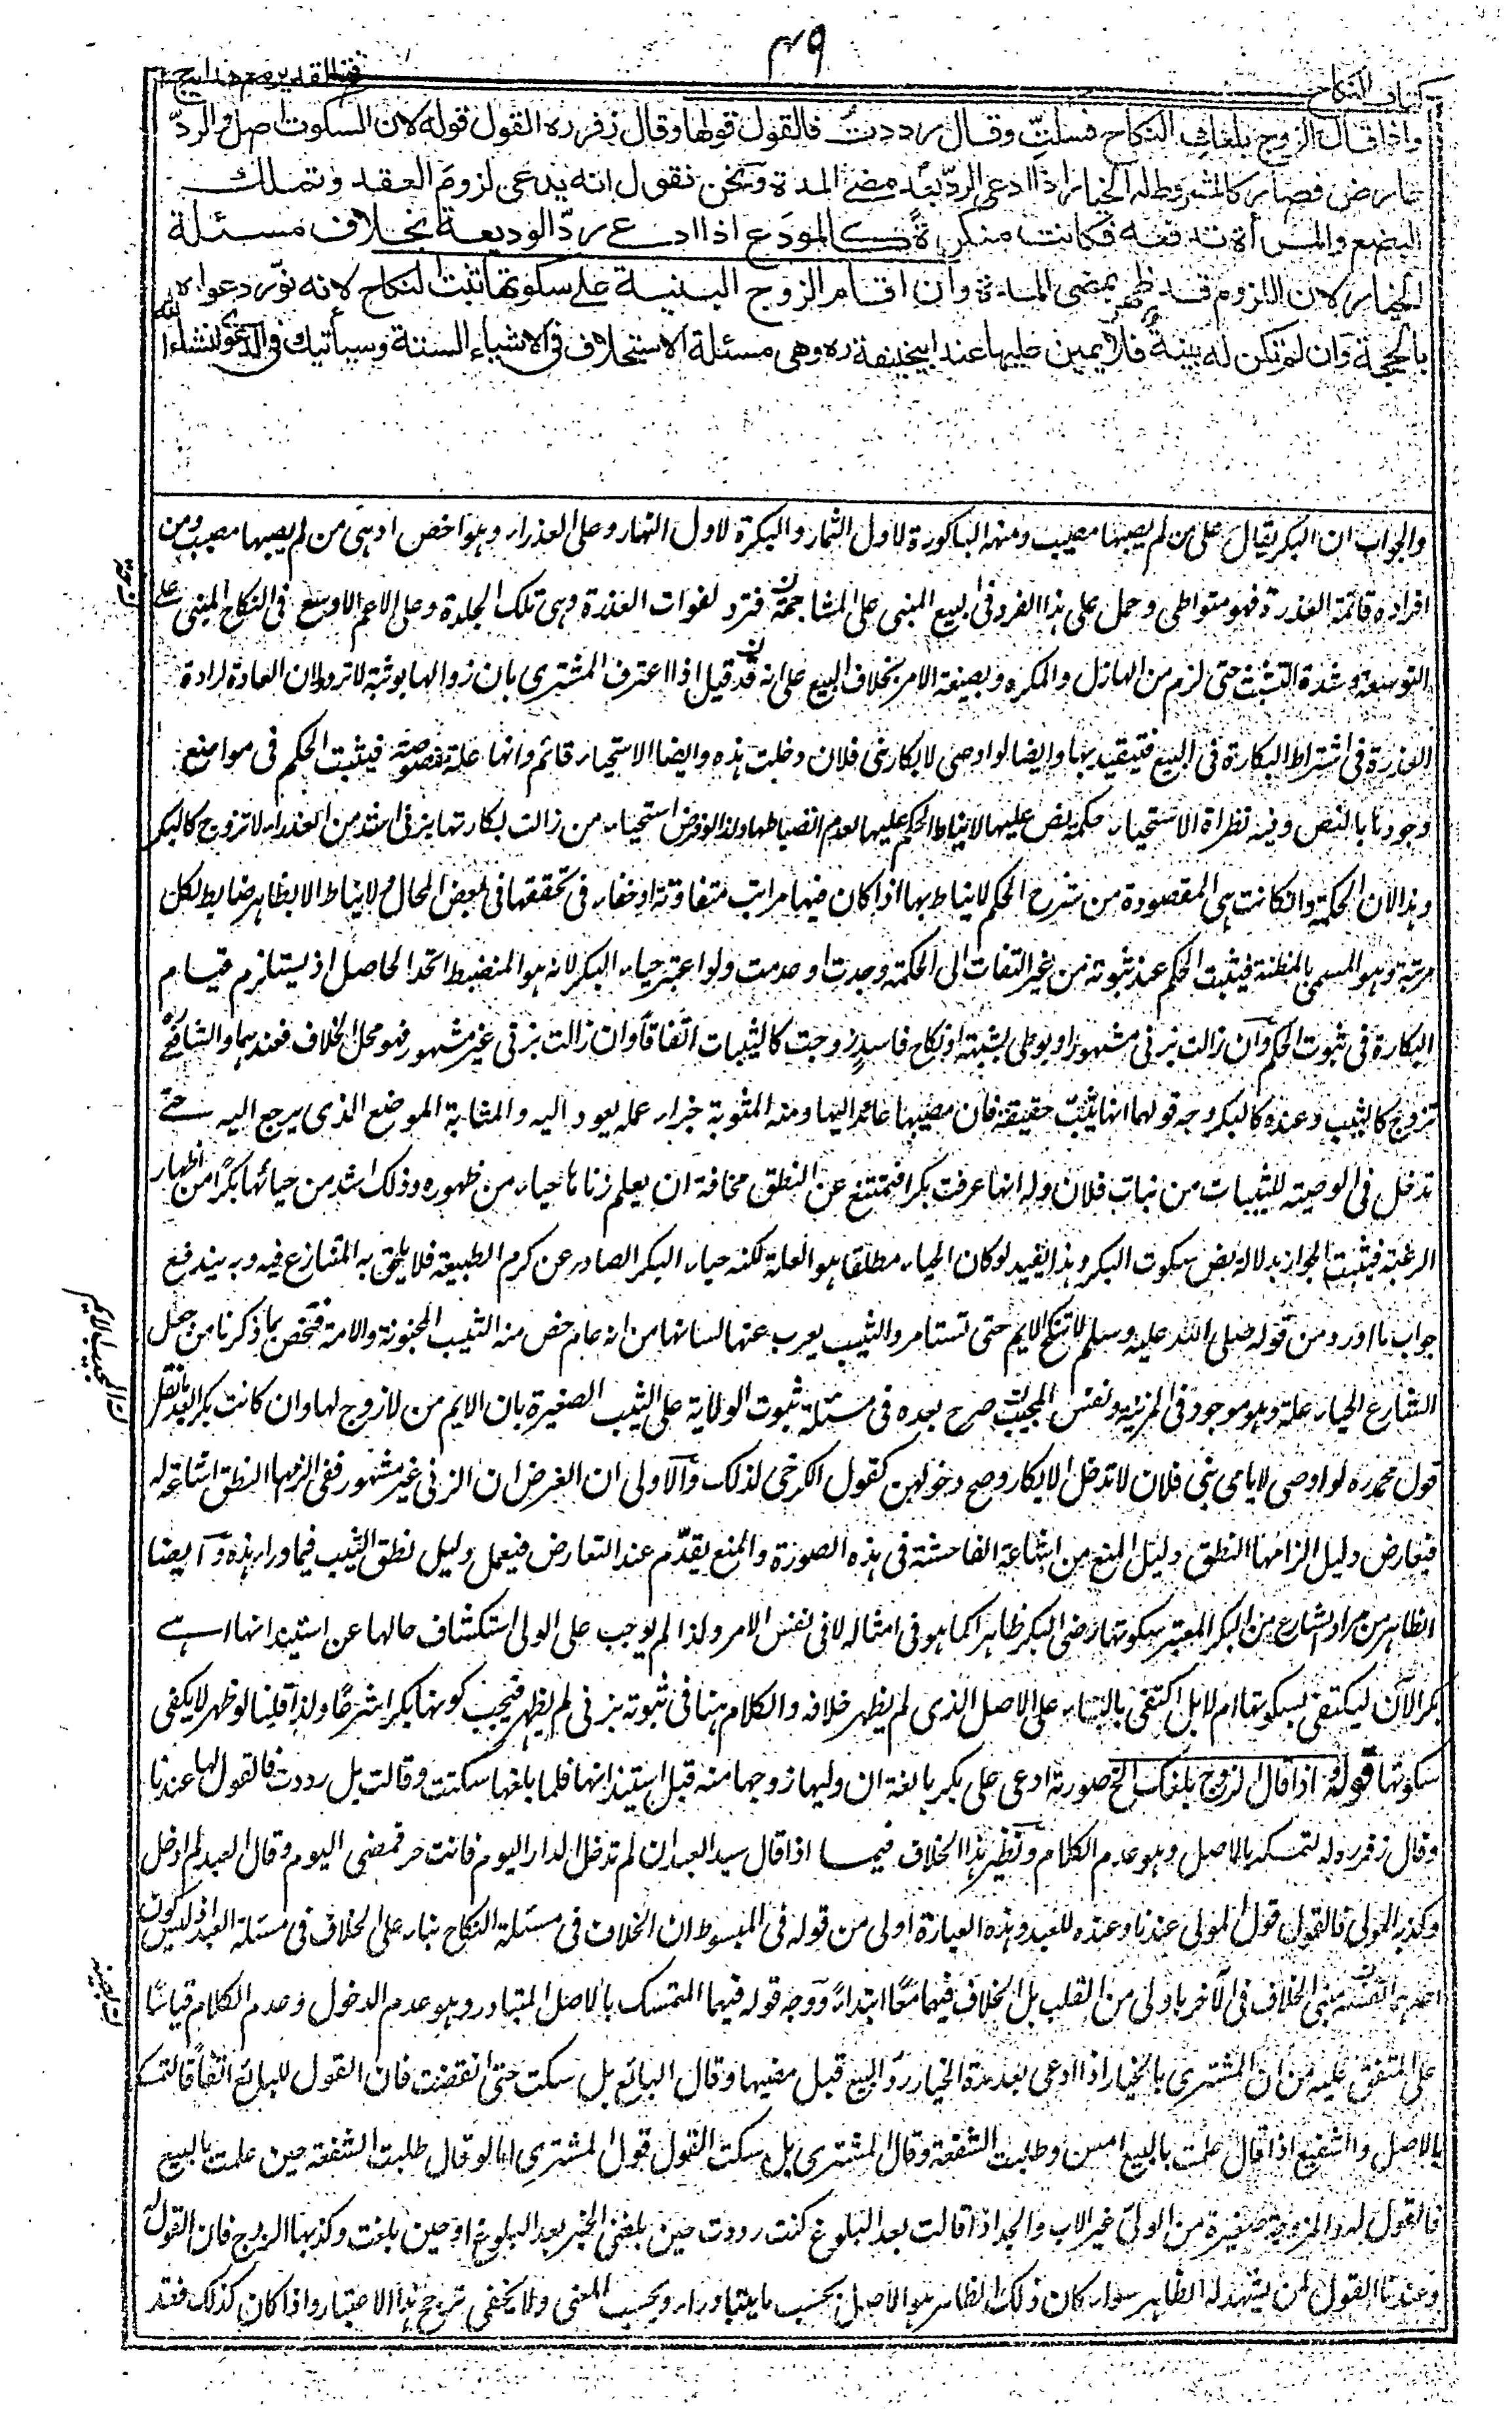 ٣٩
كتاب النكاح
فتح القدير مع هدايه ج ٢
واذا قال الزوج بلغكِ النكاح فسكتِّ وقالت رددتُ فالقول قولها وقال زفر ره القول قوله لان السكوت اصل والردّ
عارض فصار كالمشروط له الخيار اذا ادعى الردّ بعد مضي المدة ونحن نقول انه يدعى لزومَ العقد وتملك
البضع والمرأة تدفعه فكانت منكرةً كالمودَع اذا ادعى ردّ الوديعة بخلاف مسئلة
الخيار لان اللزوم قد ظهر بمضى المدة وان اقام الزوج البينة على سكوتها ثبت النكاح لانه نوّر دعواه
بالحجة وان لم تكن له بينةٌ فلا يمين عليها عند ابيحنيفة ره وهى مسئلة الاستحلاف فى الاشياء الستة وسيأتيك فى الدعوى انشاء الله
والجواب ان البكر يقال على من لم يصبها مصيب ومنه الباكورة لاول الثمار والبكرة لاول النهار وعلى العذراء وهو اخص اذ هى من لم يصبها مصيب ومن
افراده قائمة العذرة فهو متواطى وحمل على هذا الفرد فى البيع المبنى على المشاحة فترد لفوات العذرة وهى تلك الجلدة وعلى الاعم الاوسع فى النكاح المبنى على
التوسعة وشدة التثبت حتى لزم من الهازل والمكره وبصيغة الامر بخلاف البيع على انه قد قيل اذا اعترف المشترى بان زوالها بوثبة لا ترد لان العادة ارادة
العذرة فى اشتراط البكارة فى البيع فيتقيد بها وايضا لو اوصى لابكار بنى فلان دخلت هذه وايضا الاستحياء قائم وانها علة منصوصة فيثبت الحكم فى مواضع
وجودها بالنص وفيه نظر اذ الاستحياء حكمة نص عليها لا يناط الحكم عليها لعدم انضباطها ولذا لو فرض استحياء من زالت بكارتها بزنى اشد من العذراء لا تزوج كالبكر
وهذا لان الحكمة وان كانت هى المقصودة من شرع الحكم لا يناط بها اذا كان فيها مراتب متفاوتة او خفاء فى تحققها فى بعض المحال ولا يناط الا بظاهر ضابط لكل
مرتبة وهو المسمى بالمظنة فيثبت الحكم عند ثبوته من غير التفات الى الحكمة وجدت او عدمت ولو اعتبر حياء البكر لانه هو المنضبط اتحد الحاصل اذ يستلزم قيام
البكارة فى ثبوت الحكم وان زالت بزنى مشهور او بوطى بشبهة او نكاح فاسد زوجت كالثيبات اتفاقا وان زالت بزنى غير مشهور فهو محل الخلاف فعندهما والشافعى ره
تزوج كالثيب وعنده كالبكر وجه قولهما انها ثيّب حقيقة فان مصيبها عائد اليها ومنه المثوبة جزاء عمله يعود اليه والمثابة الموضع الذى يرجع اليه حتى
تدخل فى الوصية للثيبات من بنات فلان وله انها عرفت بكرا فتمتنع عن النطق مخافة ان يعلم زناها حياء من ظهوره وذلك اشد من حيائها بكرًا من اظهار
الرغبة فيثبت الجواز بدلالة نص سكوت البكر وهذا يفيد لو كان الحياء مطلقا هو العلة لكنه حياء البكر الصادر عن كرم الطبيعة فلا يلحق به المتنازع فيه وبه يندفع
جواب ما اورد من قوله صلى الله عليه وسلم لا تنكح الايم حتى تستامر والثيب يعرب عنها لسانها من انه عام خص منه الثيب المجنونة والامة فتخص بما ذكرنا من جعل
الشارع الحياء علة وهو موجود فى المزنية ونفس المجيب صرح بعده فى مسئلة ثبوت الولاية على الثيب الصغيرة بان الايم من لا زوج لها وان كانت بكرا بعد نقل
قول محمد ره لو اوصى لايامى بنى فلان لا تدخل الابكار وصح دخولهن كقول الكرخى لذلك والاولى ان الغرض ان الزنى غير مشهور ففى الزامها النطق اشاعة له
فيعارض دليل الزامها النطق دليل المنع من اشاعة الفاحشة فى هذه الصورة والمنع يقدّم عند التعارض فيعمل دليل نطق الثيب فيما وراء هذه وايضا
الظاهر من مراد الشارع من البكر المعتبر سكوتها رضى البكر ظاهرا كما هو فى امثاله لا فى نفس الامر ولذا لم يوجب على الولى استكشاف حالها عن استيذانها اهى
بكر الآن ليكتفى بسكوتها ام لا بل اكتفى بالبناء على الاصل الذى لم يظهر خلافه والكلام هنا فى ثبوته بزنى لم يظهر فيجب كونها بكرا شرعًا ولذا قلنا لو ظهر لا يكفى
سكوتها قوله واذا قال الزوج بلغك الخ صورته ادعى على بكر بالغة ان وليها زوجها منه قبل استيذانها فلما بلغها سكتت وقالت بل رددت فالقول لها عندنا
وقال زفر ره له لتمسكه بالاصل وهو عدم الكلام ونظير هذا الخلاف فيما اذا قال سيد العبد ان لم تدخل الدار اليوم فانت حر فمضى اليوم وقال العبد لم ادخل
وكذبه المولى فالقول قول المولى عندنا وعنده للعبد وهذه العبارة اولى من قوله فى المبسوط ان الخلاف فى مسئلة النكاح بناء على الخلاف فى مسئلة العبد اذ ليس كون
احدهما بعينه مبنى الخلاف فى الآخر باولى من القلب بل الخلاف فيهما معًا ابتداءً ووجه قوله فيهما التمسك بالاصل المتبادر وهو عدم الدخول وعدم الكلام قياسًا
على المتفق عليه من ان المشترى بالخيار اذا ادعى بعد مدة الخيار ردّ البيع قبل مضيها وقال البائع بل سكت حتى انقضت فان القول للبائع اتفاقًا لتمسكه
بالاصل والشفيع اذا قال علمت بالبيع امس وطلبت الشفعة وقال المشترى بل سكت القول قول المشترى اما لو قال طلبت الشفعة حين علمت بالبيع
فالقول له والمزوجة صغيرة من الولىّ غير الاب والجد اذا قالت بعد البلوغ كنت رددت حين بلغنى الخبر بعد البلوغ او حين بلغت وكذبها الزوج فان القول له
وعندنا القول لمن يشهد له الظاهر سواء كان ذلك الظاهر هو الاصل بحسب ما يتبادر او بحسب المعنى ولا يخفى ترجح هذا الاعتبار واذا كان كذلك فقد